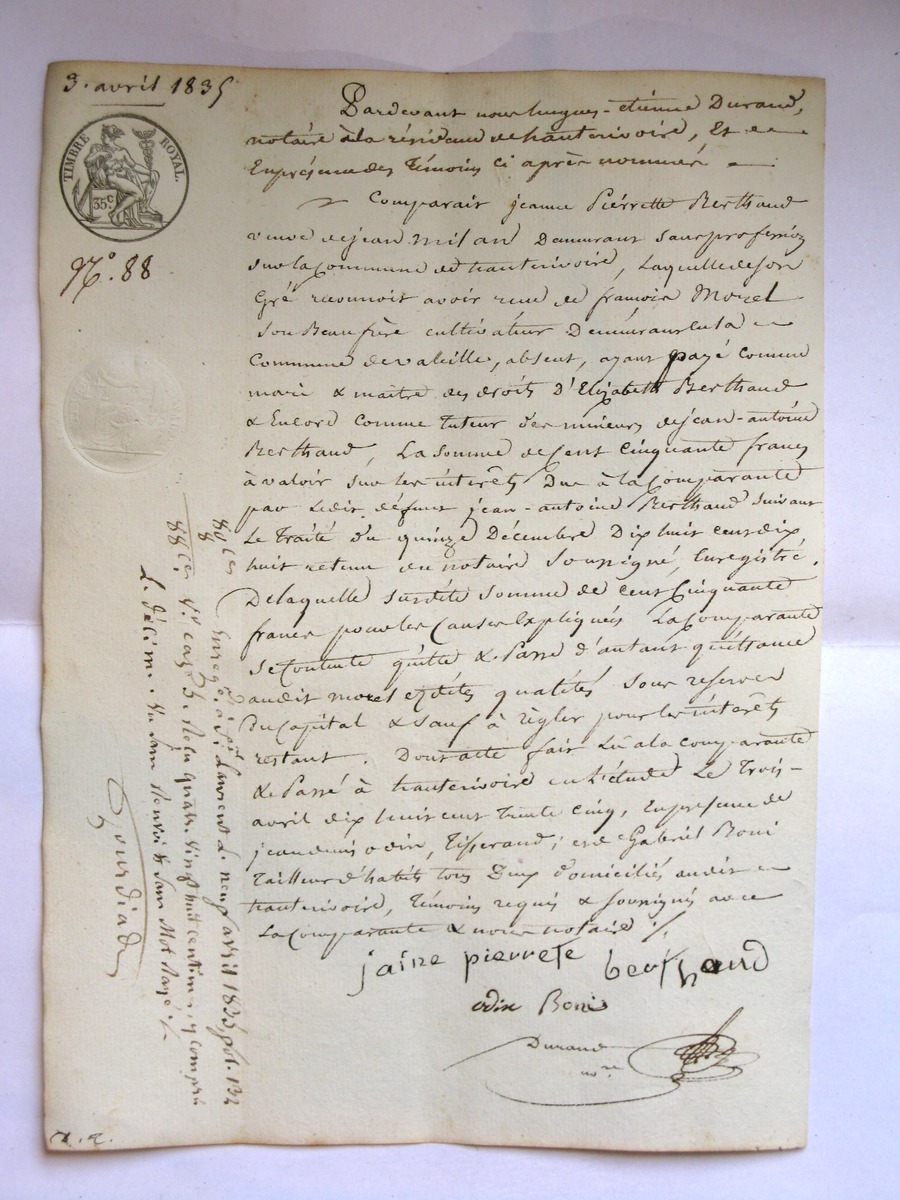 3. avril 1835
TIMBRE ROYAL.
35 c
N.º 88
Pardevant nous hugues-étienne Durand,
notaire à la résidence de hauterivoire, Et en
Enprésence des Témoins ci après nommés
Comparait jeanne Pierrette Berthaud
veuve de jean milan Demurant sans profession
sur la Commune de hauterivoire, Laquelle de son
Gré reconnoit avoir reçu de françois Morel
son Beaufrère cultivateur Demeurant en la
Commune de valeille, absent, ayant payé Comme
mari & maitre des droits D'Elizabeth Berthaud
& Encore Comme tuteur des mineurs de jean-antoine
Berthaud, La somme de Cent Cinquante francs
à valoir sur les interêts Dus à la Comparante
par Ledit défunt jean-antoine Berthaud suivant
Le Traité du quinze Décembre Dix huit cent dix
huit retenu du notaire soussigné, Enregistré.
De laquelle susdite somme de cent Cinquante
francs pour les Causes Expliquées La Comparante
se Contente quitte & Passe d'autant quittance
audit morel esdites qualités sous reserves
Du Capital & sauf à règler pour les interêts
restant. Dont acte fait Lu à la comparante
& Passé à hauterivoire en L'étude Le Trois
avril dix huit cent trente cinq, En présence de
jean denis odin, Tisserand; et de Gabriel Boni
Tailleur d'habits tous Deux domiciliés audit
hauterivoire, Témoins requis & soussignés avec
La Comparante & nous notaire
jaine pierrete berthaud
odin Boni
Durand
nre
80 ces
8
88 ces
Enregé à St Laurent L. neuf avril 1835, fol. 132
Vº case 5. Reçu quatre vingt huit centimes y compris
Le décime. Un sans Renvoi & sans Mot Rayé